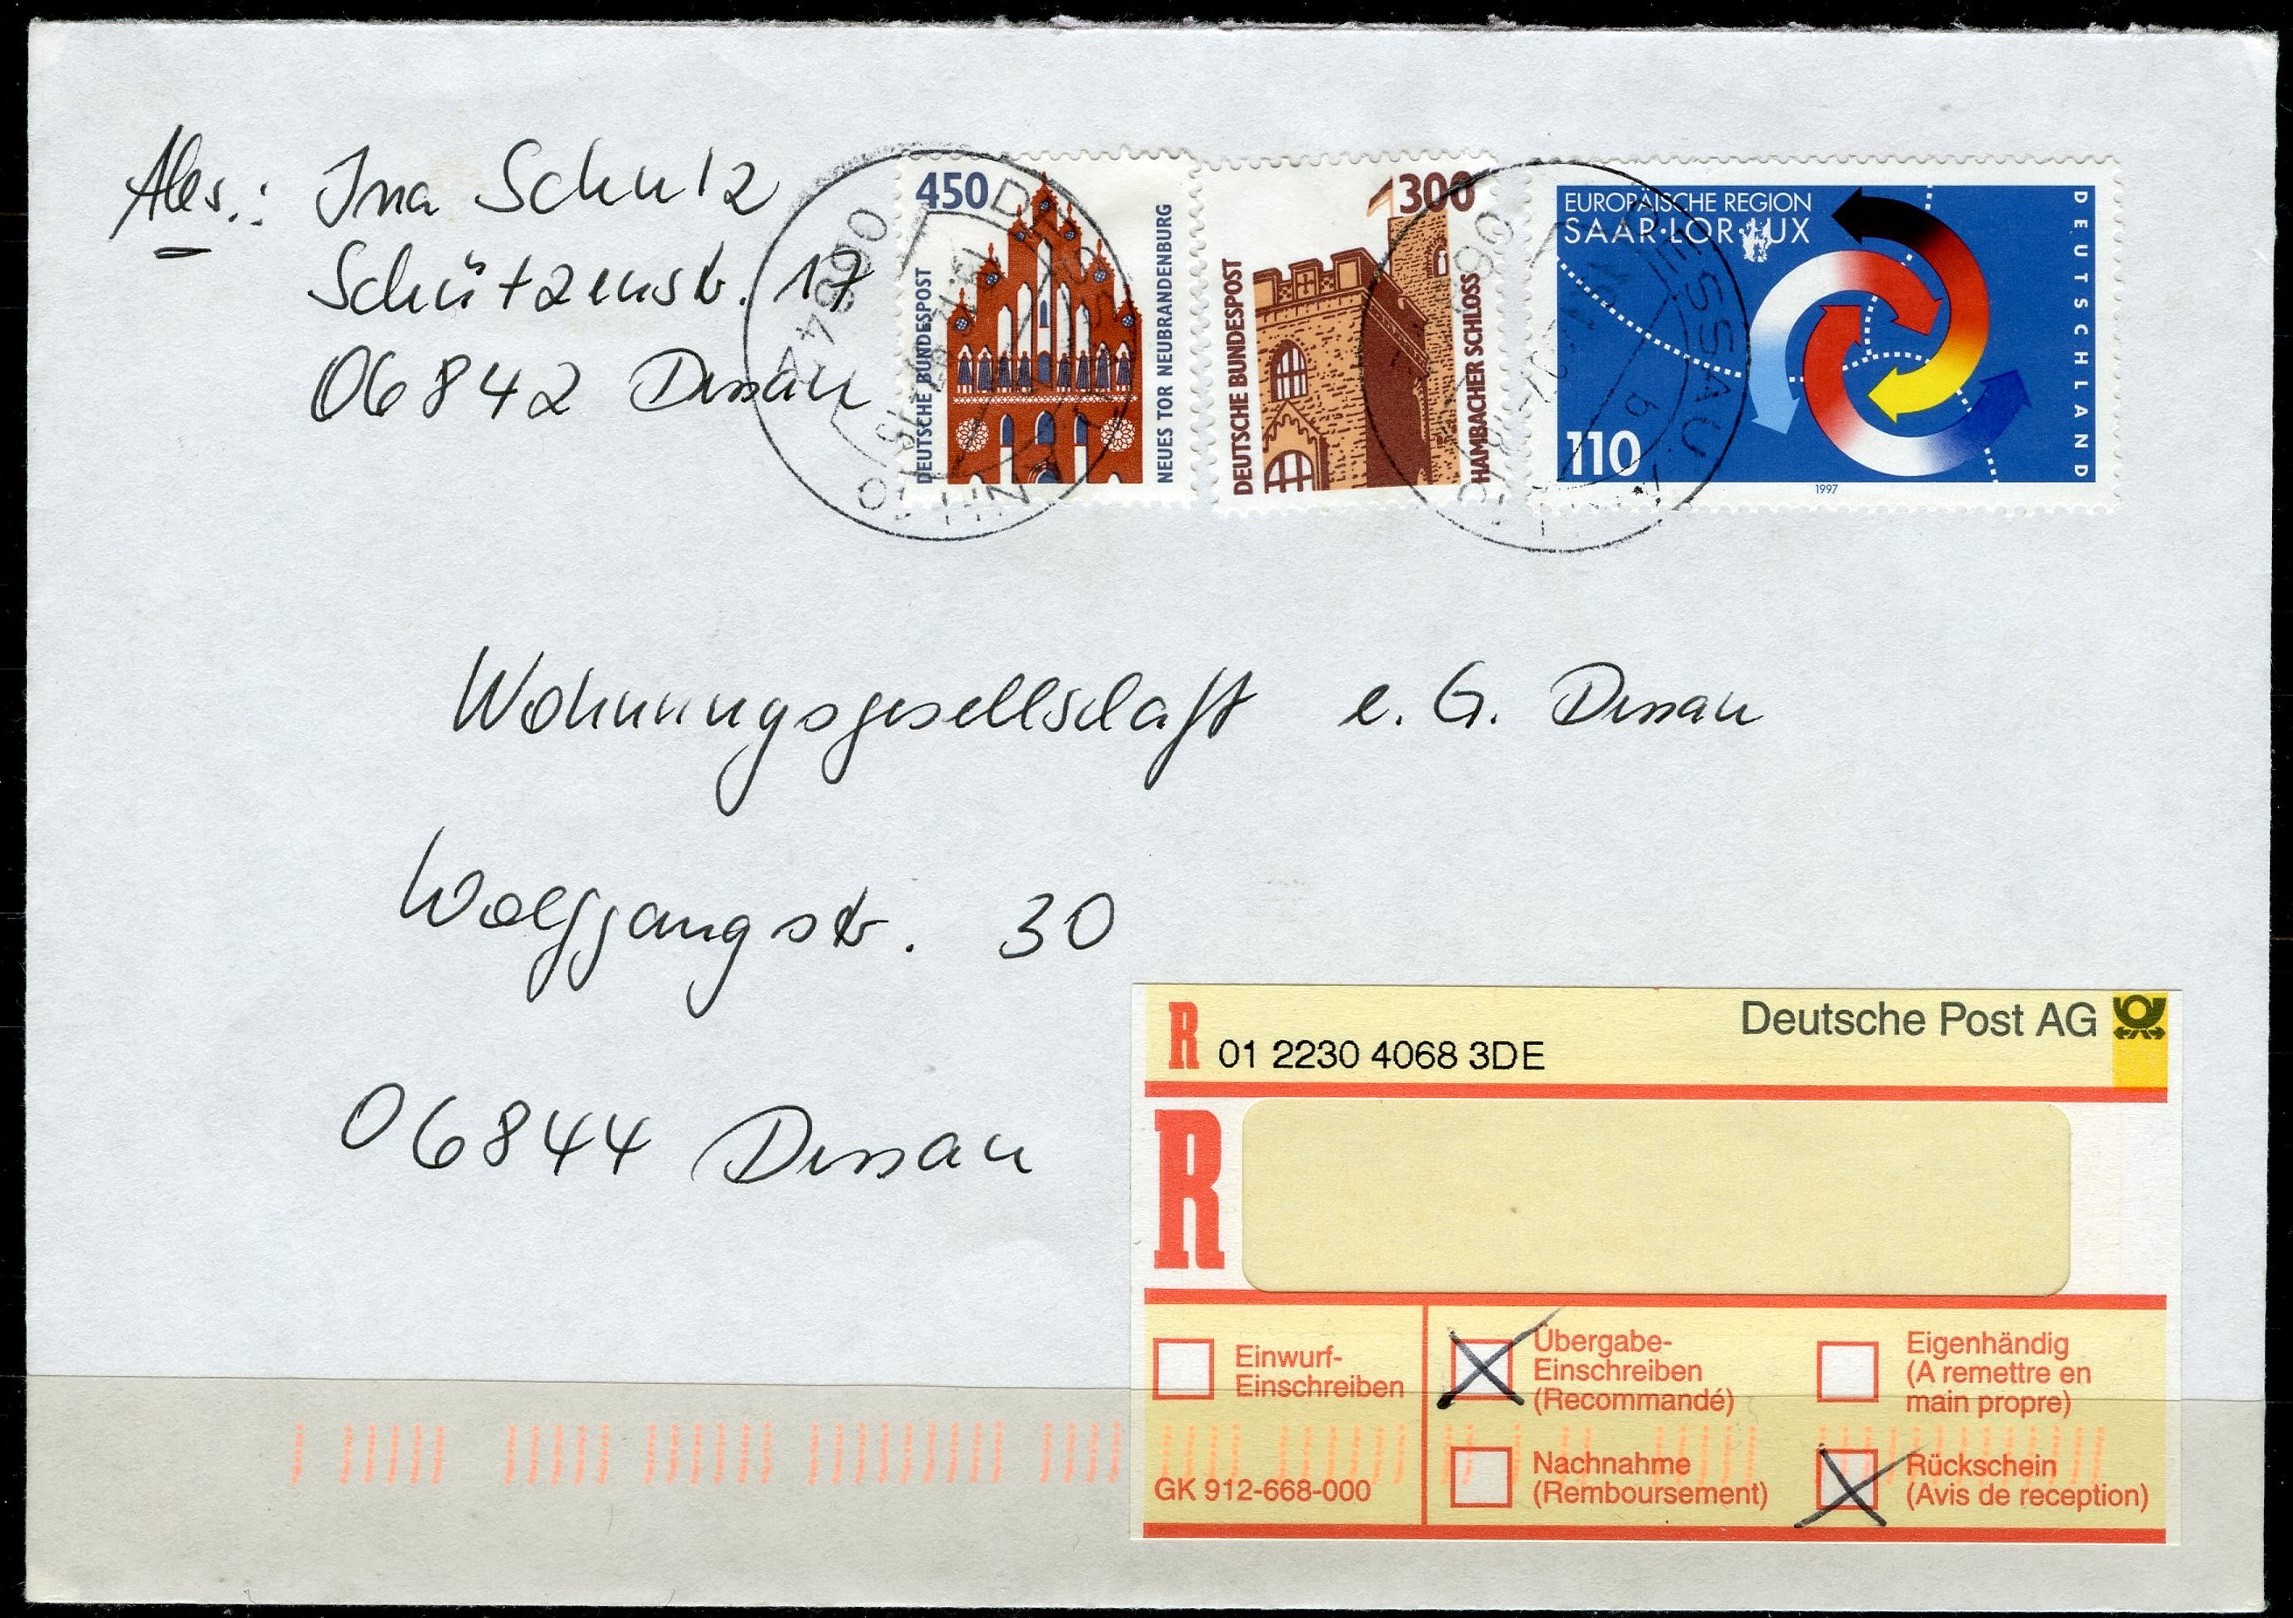 Abs.: Ina Schulz
Schützenstr. 17
06842 Dessau
450
DEUTSCHE BUNDESPOST
NEUES TOR NEUBRANDENBURG
300
DEUTSCHE BUNDESPOST
HAMBACHER SCHLOSS
EUROPÄISCHE REGION
SAAR·LOR·LUX
DEUTSCHLAND
110
1997
06842
DESSAU
b
Wohnungsgesellschaft e. G. Dessau
Wolfgangstr. 30
06844 Dessau
Deutsche Post AG
R 01 2230 4068 3DE
R
Einwurf-
Einschreiben
Übergabe-
Einschreiben
(Recommandé)
Eigenhändig
(A remettre en
main propre)
GK 912-668-000
Nachnahme
(Remboursement)
Rückschein
(Avis de reception)